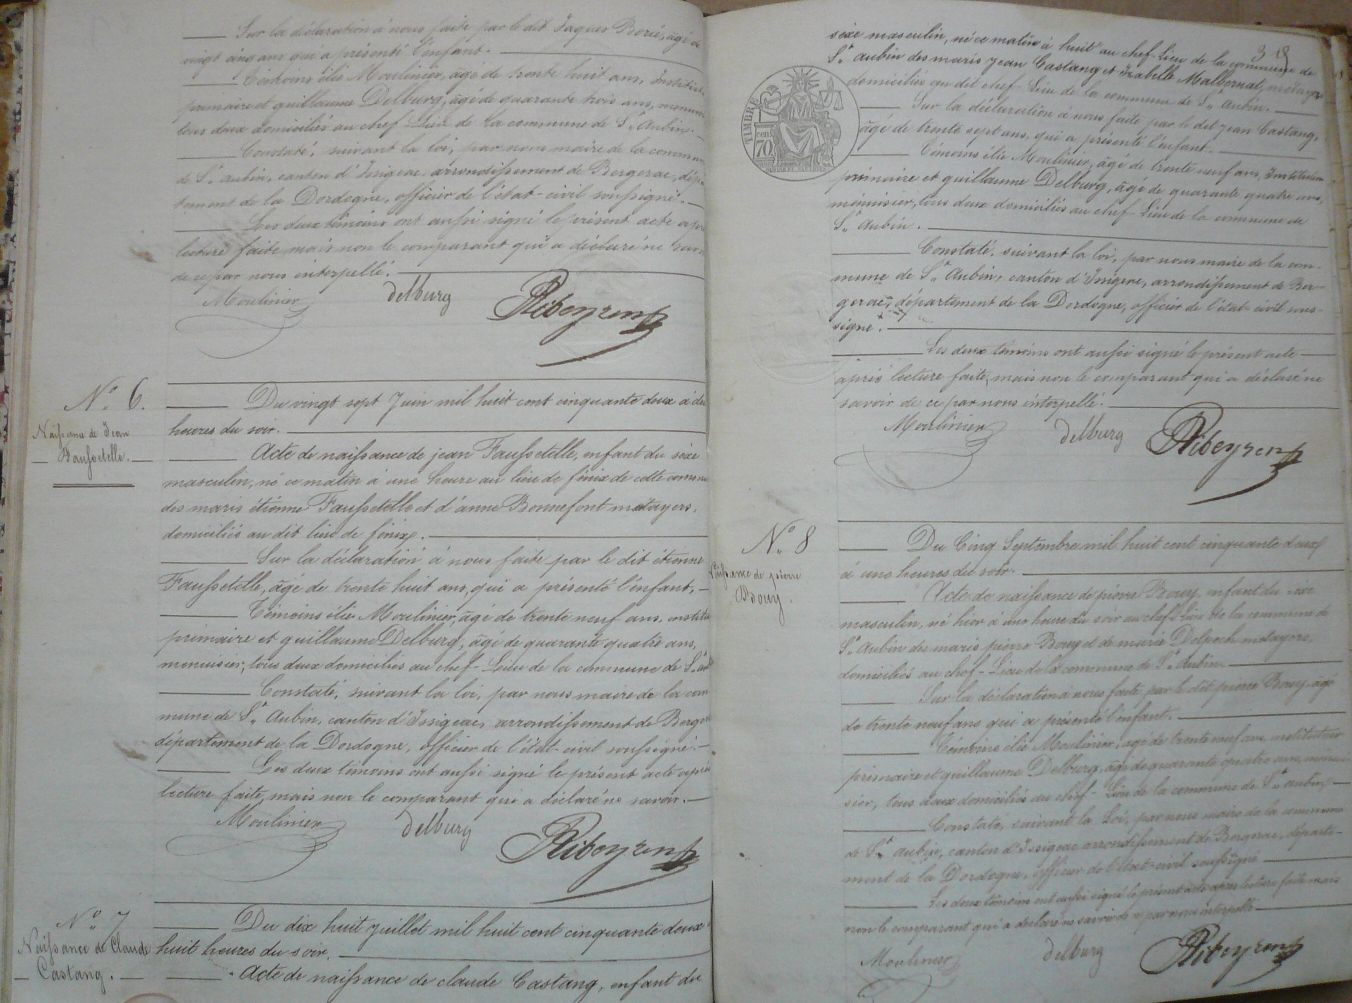 Sur la déclaration à nous faite par le dit Jaques Borie, âgé de
vingt cinq ans qui a présenté l'enfant.
Témoins élie Moulinier, âgé de trente huit ans, Instituteur
primaire et guillaume Delburg, âgé de quarante trois ans, menui
tous deux domiciliés au chef-Lieu de la commune de St Aubin.
Constaté, suivant la loi, par nous maire de la commune
de St Aubin, canton d'Issigeac, arrondissement de Bergerac, dépar
tement de la Dordogne, officier de l'état-civil soussigné.
Les deux témoins ont aussi signé le présent acte après
lecture faite mais non le comparant qui a déclaré ne savoir
de ce par nous interpellé.
Moulinier Delburg Ribeyren
N° 6.
Naissance de Jean
Faussetelle.
Du vingt sept Juin mil huit cent cinquante deux à dix
heures du soir.
Acte de naissance de jean Faussetelle, enfant du sexe
masculin, né ce matin à une heure au lieu de finix de cette commune
des maris étienne Faussetelle et d'anne Bonnefont métayers,
domiciliés au dit lieu de finix.
Sur la déclaration à nous faite par le dit étienne
Faussetelle, âgé de trente huit ans, qui a présenté l'enfant.
Témoins élie Moulinier, âgé de trente neuf ans, institu
primaire et guillaume Delburg, âgé de quarante quatre ans,
menuisier, tous deux domiciliés au chef-Lieu de la commune de St Aubin
Constaté, suivant la loi, par nous maire de la com
mune de St Aubin, canton d'Issigeac, arrondissement de Berge
département de la Dordogne, officier de l'état-civil soussigné.
Les deux témoins ont aussi signé le présent acte après
lecture faite, mais non le comparant qui a déclaré ne savoir.
Moulinier Delburg Ribeyren
N° 7
Naissance de Claude
Castang.
Du dix huit juillet mil huit cent cinquante deux
huit heures du soir.
Acte de naissance de claude Castang, enfant du
sexe masculin, né ce matin à huit au chef-Lieu de la commune de
St Aubin des maris jean Castang et Isabelle Malbernat, métayers
domiciliés au dit chef-Lieu de la commune de St Aubin.
TIMBRE
70
Sur la déclaration à nous faite par le dit jean Castang,
âgé de trente sept ans, qui a présenté l'enfant.
Témoins élie Moulinier, âgé de trente neuf ans, Instituteur
primaire et guillaume Delburg, âgé de quarante quatre ans,
menuisier, tous deux domiciliés au chef-Lieu de la commune de
St Aubin.
Constaté, suivant la loi, par nous maire de la com-
mune de St Aubin, canton d'Issigeac, arrondissement de Ber-
gerac, département de la Dordogne, officier de l'état-civil sous-
signé.
Les deux témoins ont aussi signé le présent acte
après lecture faite, mais non le comparant qui a déclaré ne
savoir de ce par nous interpellé.
Moulinier Delburg Ribeyren
N° 8
Naissance de pierre
Bouy.
Du Cinq Septembre mil huit cent cinquante deux
à une heures du soir.
Acte de naissance de pierre Bouy, enfant du sexe
masculin, né hier à une heure du soir au chef-lieu de la commune de
St Aubin des maris pierre Bouy et de marie Delpech métayers,
domiciliés au chef-Lieu de la commune de St Aubin.
Sur la déclaration à nous faite par le dit pierre Bouy, âgé
de trente neuf ans qui a présenté l'enfant.
Témoins élie Moulinier, âgé de trente neuf ans, instituteur
primaire et guillaume Delburg, âgé de quarante quatre ans, menui-
sier, tous deux domiciliés au chef-Lieu de la commune de St Aubin.
Constaté, suivant la Loi, par nous maire de la commune
de St Aubin, canton d'Issigeac arrondissement de Bergerac, départe-
ment de la Dordogne, officier de l'état-civil soussigné.
Les deux témoins ont aussi signé le présent acte après lecture faite mais
non le comparant qui a déclaré ne savoir de ce par nous interpellé.
Moulinier Delburg Ribeyren